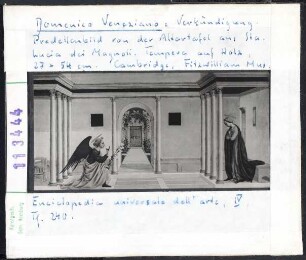 Domenico Veneziano: Verkündigung.
Predellenbild von der Altartafel aus Sta.
Lucia dei Magnoli. Tempera auf Holz,
27 x 54 cm. Cambridge, Fitzwilliam Mus.
113444
Enciclopedia universale dell'arte, IV,
Tf. 240.